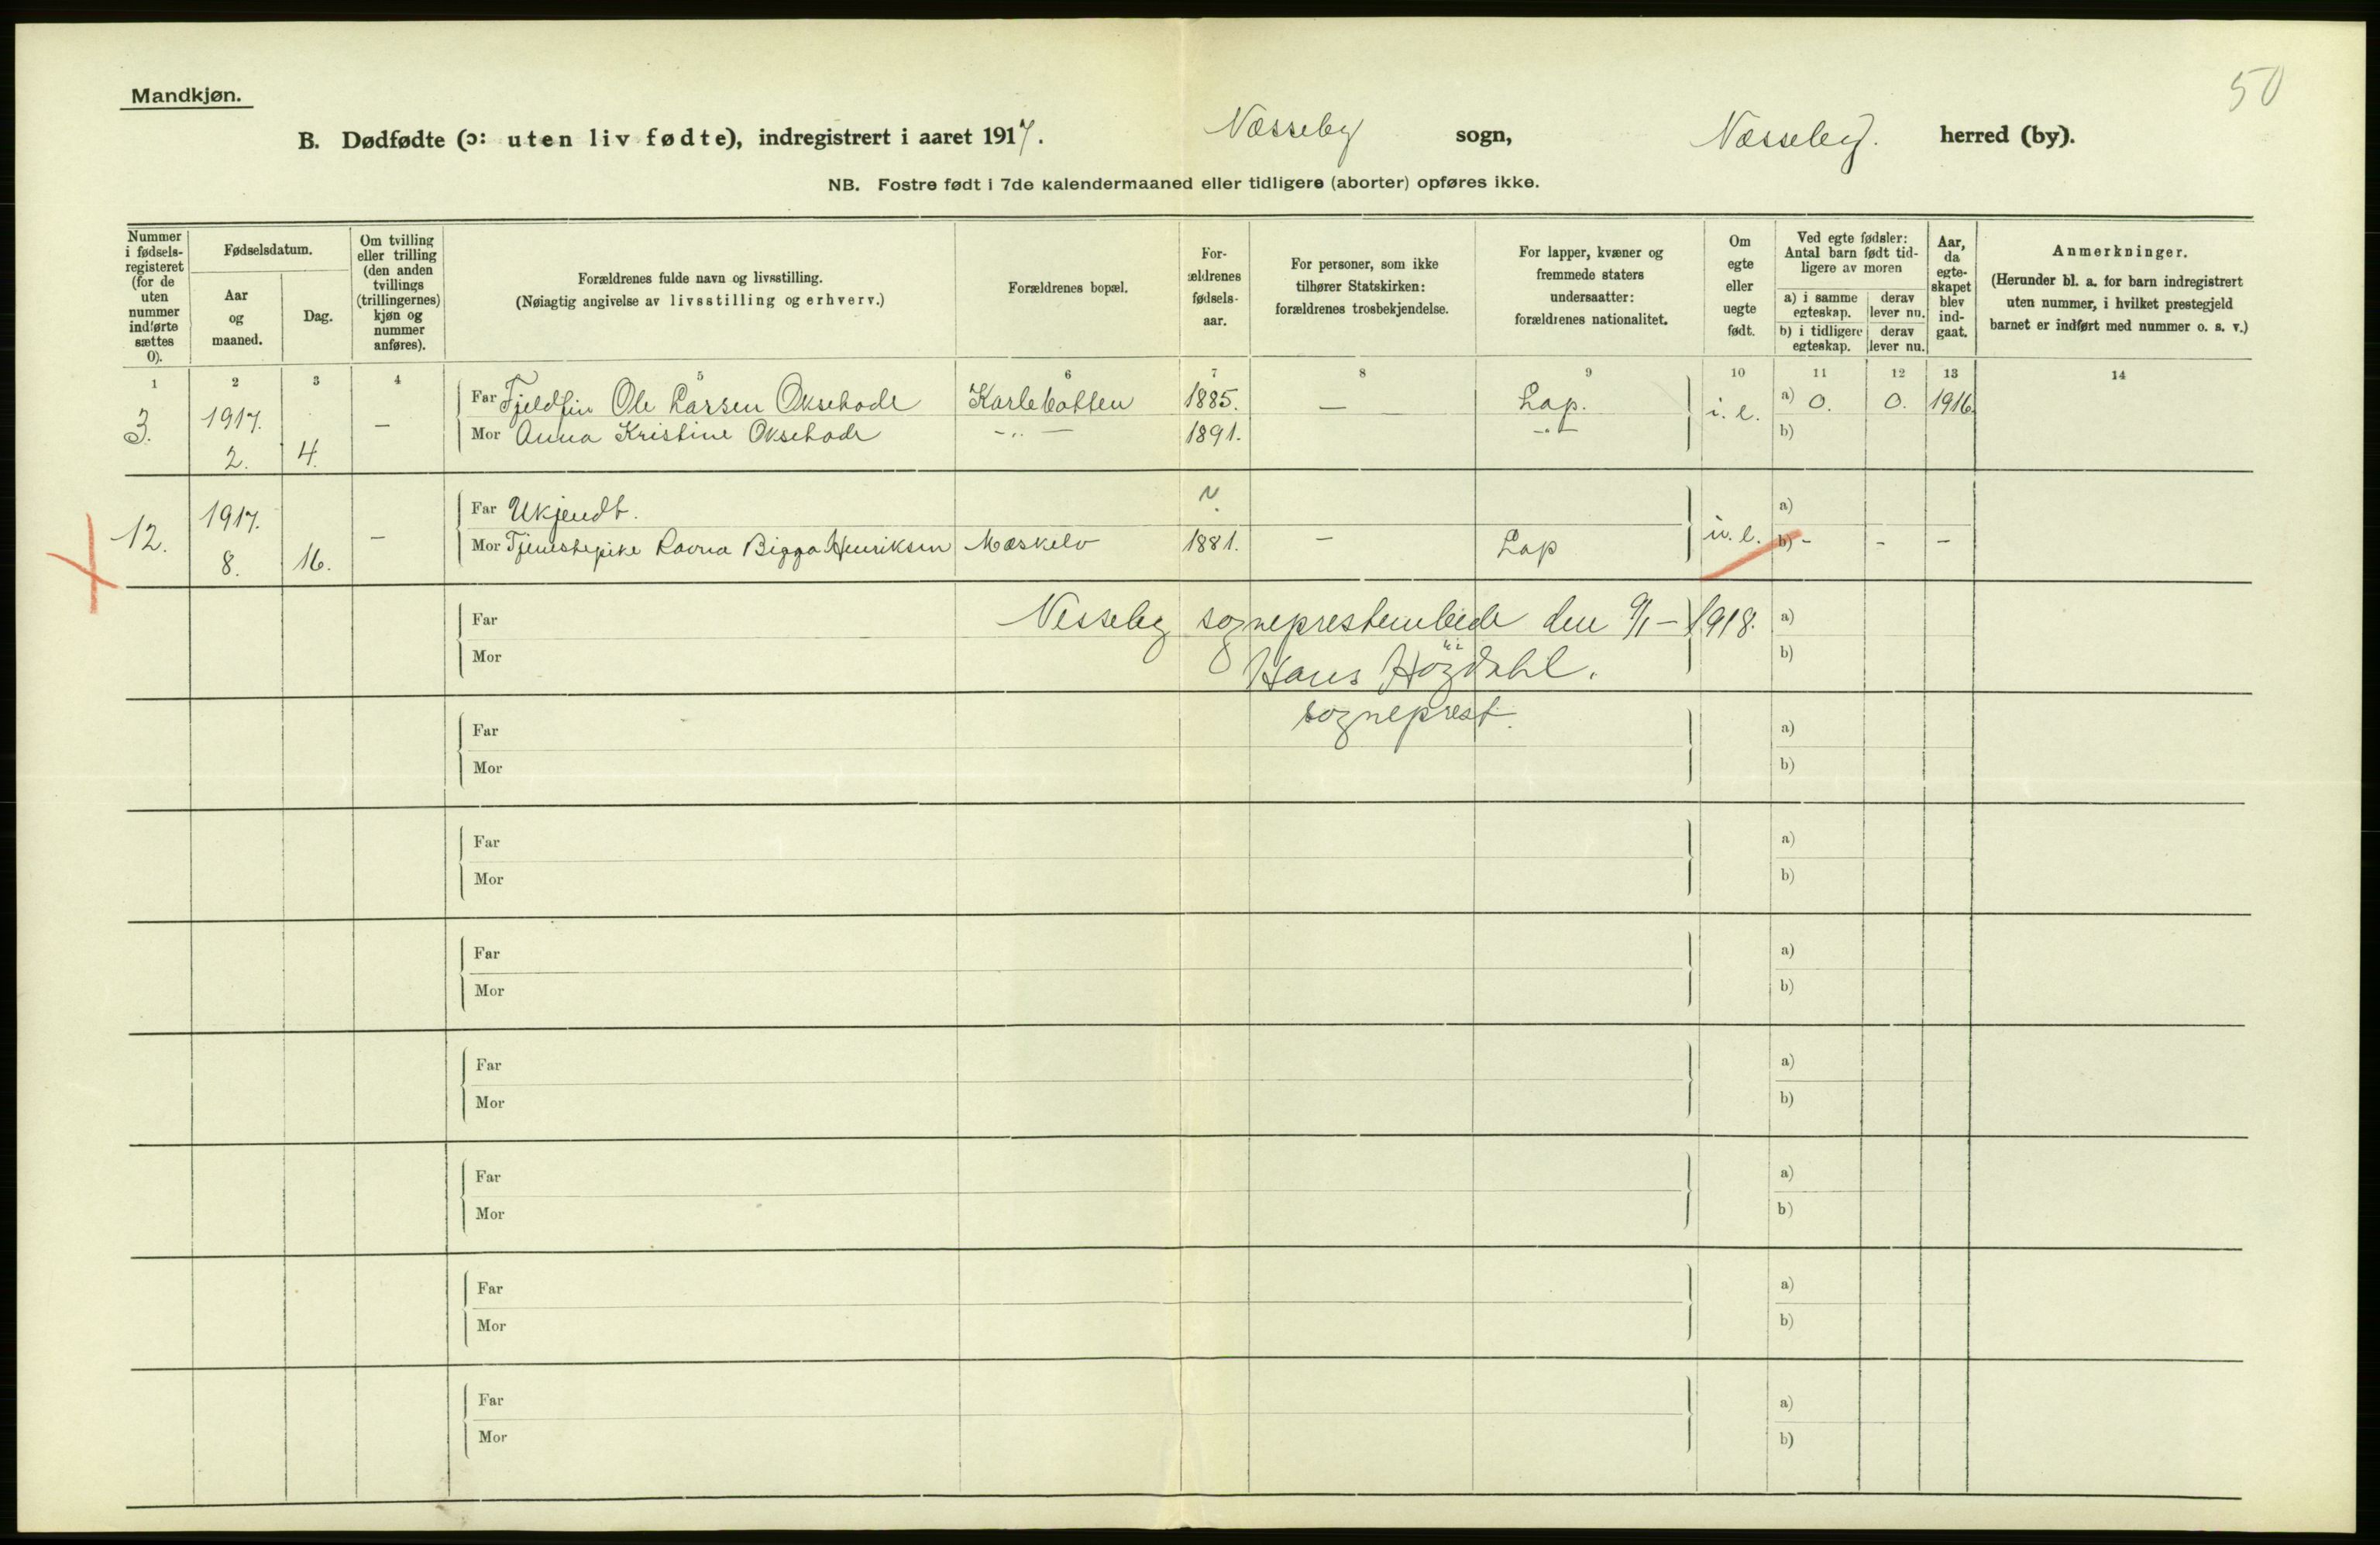 50
Mandkjøn.
B. Dødfødte (ɔ: uten liv fødte), indregistrert i aaret 1917. Næsseby sogn, Næsseby. herred (by).
NB. Fostre født i 7de kalendermaaned eller tidligere (aborter) opføres ikke.
Nummer i fødsels-registeret (for de uten nummer indførte sættes 0).
Fødselsdatum.
Aar og maaned.
Dag.
Om tvilling eller trilling (den anden tvillings (trillingernes) kjøn og nummer anføres).
Forældrenes fulde navn og livsstilling.
(Nøiagtig angivelse av livsstilling og erhverv.)
Forældrenes bopæl.
For-ældrenes fødsels-aar.
For personer, som ikke tilhører Statskirken: forældrenes trosbekjendelse.
For lapper, kvæner og fremmede staters undersaatter: forældrenes nationalitet.
Om egte eller uegte født.
Ved egte fødsler: Antal barn født tid-ligere av moren
a) i samme egteskap.
derav lever nu.
b) i tidligere egteskap.
derav lever nu.
Aar, da egte-skapet blev ind-gaat.
Anmerkninger.
(Herunder bl. a. for barn indregistrert uten nummer, i hvilket prestegjeld barnet er indført med nummer o. s. v.)
1 2 3 4 5 6 7 8 9 10 11 12 13 14
3. 1917. 2. 4. — Far Fjeldfin Ole Larsen Oksehode Karlebotten 1885. — Lap. i. e. a) 0. 0. 1916.
Mor Anna Kristine Oksehode -„- 1891. -„- b)
12. 1917. 8. 16. — Far Ukjendt. ? a)
Mor Tjenestepike Ravna Bigga Henriksen Mæskelv 1881. — Lap u. e. b) - - -
Far Nesseby sogneprestembede den 9/1 - 1918. a)
Mor Hans Høgdahl. b)
sogneprest.
Far a)
Mor b)
Far a)
Mor b)
Far a)
Mor b)
Far a)
Mor b)
Far a)
Mor b)
Far a)
Mor b)
Far a)
Mor b)